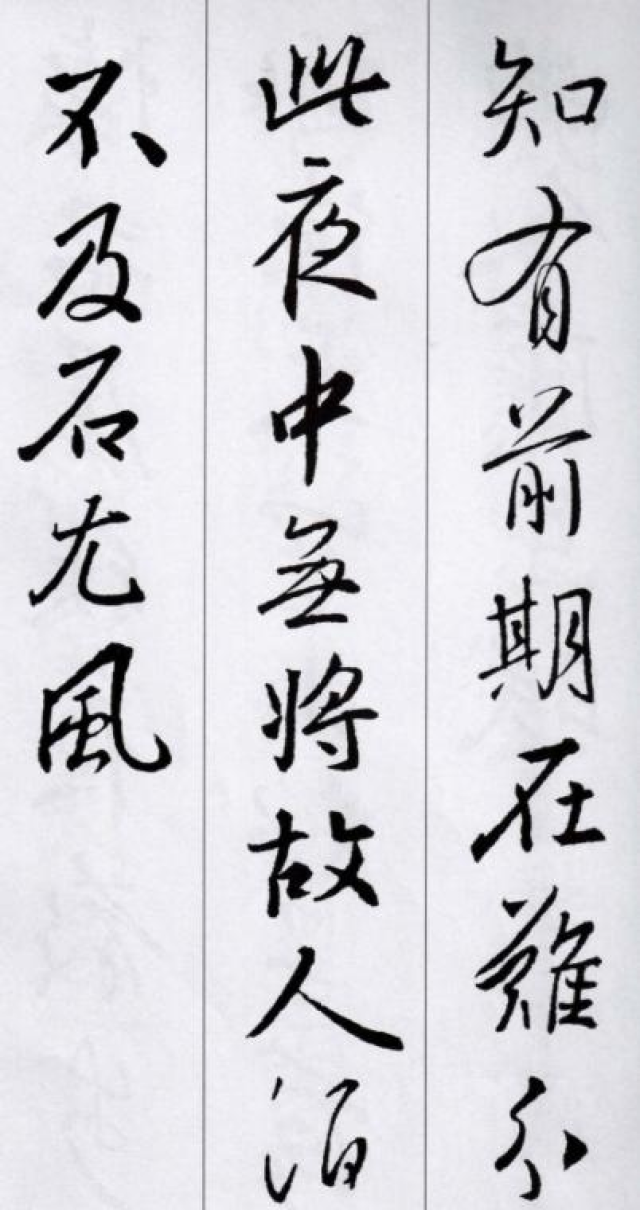 知有前期在難分
此夜中無将故人酒
不及石尤風